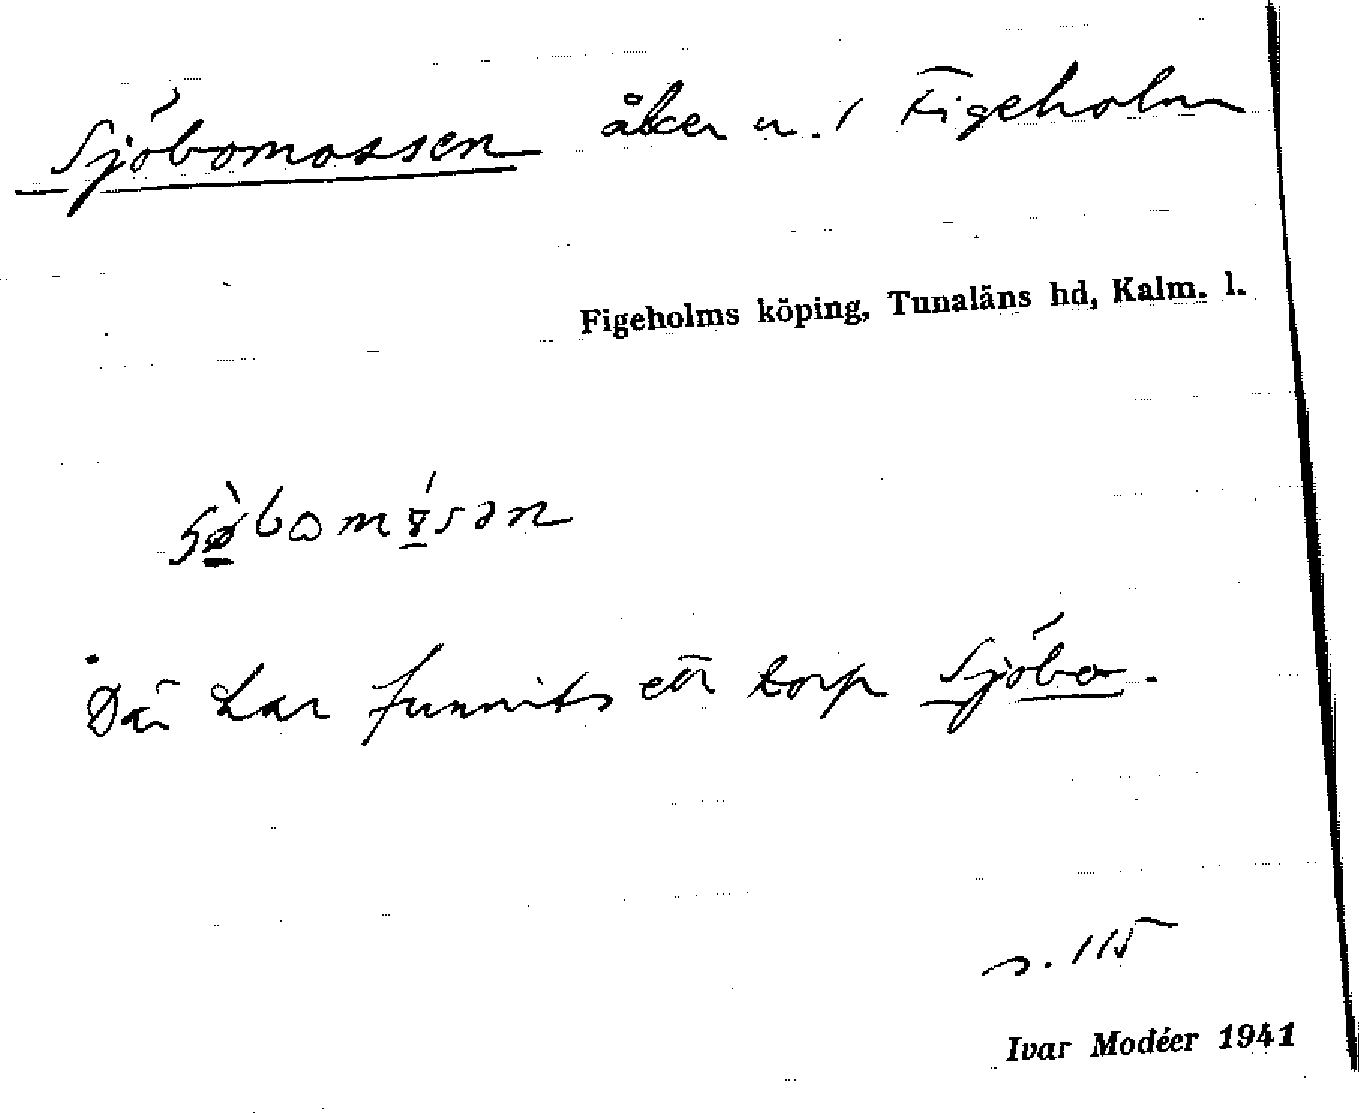 Sjöbomossen åker u. 1 Figeholm
Figeholms köping, Tunaläns hd, Kalm. l.
Där har funnits ett torp Sjöbo.
s. 115
Ivar Modéer 1941